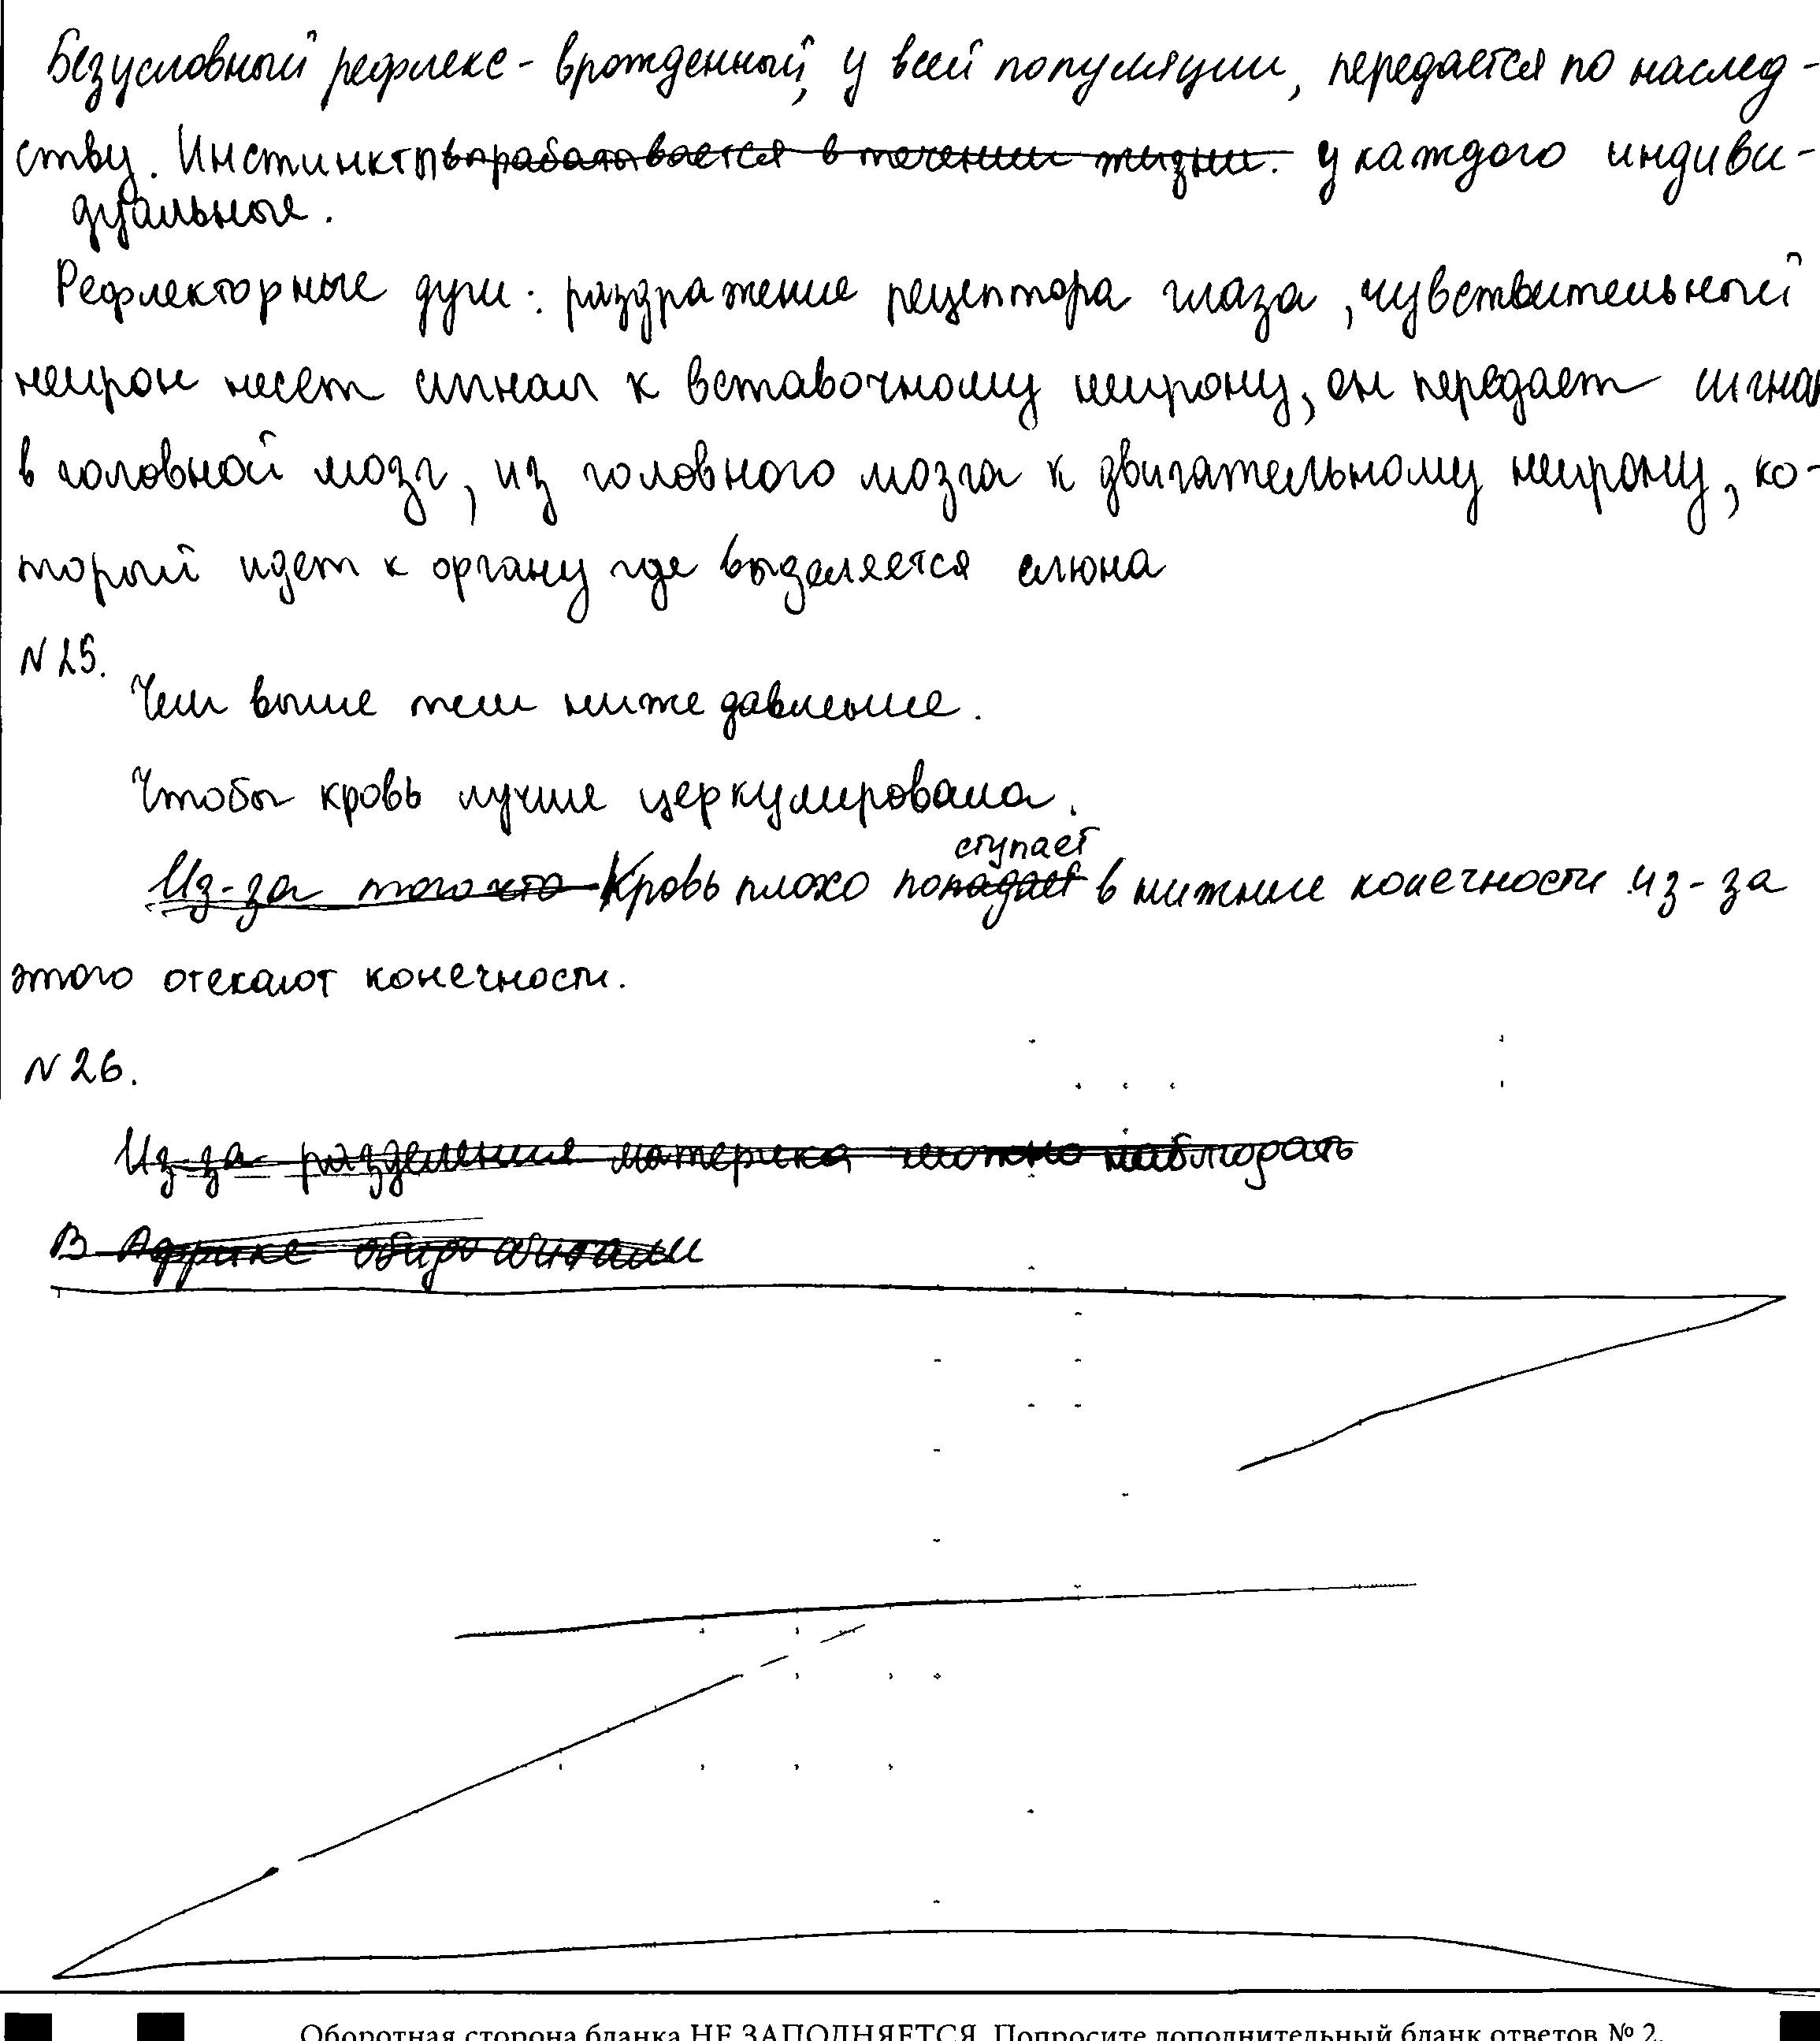 Безусловный рефлекс - врожденный, у всей популяции, передается по наслед-
ству. Инстинкты вырабатывается в течении жизни. у каждого индиви-
дуальные.
Рефлекторные дуги: раздражение рецептора глаза, чувствительный
нейрон несет сигнал к вставочному нейрону, он передает сигнал
в головной мозг, из головного мозга к двигательному нейрону, ко-
торый идет к органу где выделяется слюна
N 25.
Чем выше тем ниже давление.
Чтобы кровь лучше церкулировала.
ступает
Из-за того что Кровь плохо попадает в нижние конечности из-за
этого отекают конечности.
N 26.
Из-за разделения материка можно наблюдать
В Африке обитали
Оборотная сторона бланка НЕ ЗАПОЛНЯЕТСЯ. Попросите дополнительный бланк ответов № 2.